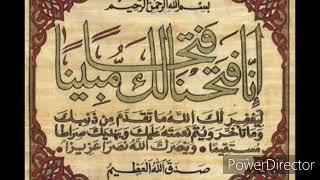 بسم الله الرحمن الرحيم
إنا فتحنا لك فتحا مبينا
ليغفر لك الله ما تقدم من ذنبك
وما تأخر ويتم نعمته عليك ويهديك صراطا
مستقيما وينصرك الله نصرا عزيزا
صدق الله العظيم
PowerDirector